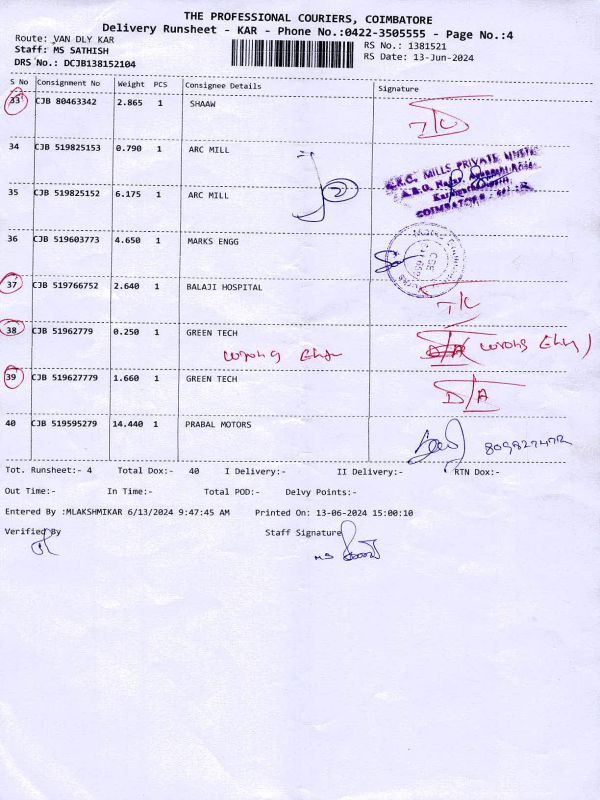 THE PROFESSIONAL COURIERS, COIMBATORE
Delivery Runsheet - KAR - Phone No.:0422-3505555 - Page No.:4
Route: VAN DLY KAR
RS No.: 1381521
Staff: MS SATHISH
RS Date: 13-Jun-2024
DRS No.: DCJB138152104
S No Consignment No Weight PCS Consignee Details Signature
33 CJB 80463342 2.865 1 SHAAW
34 CJB 519825153 0.790 1 ARC MILL
MILLS PRIVATE LIMITED
35 CJB 519825152 6.175 1 ARC MILL
COIMBATORE
36 CJB 519603773 4.650 1 MARKS ENGG
37 CJB 519766752 2.640 1 BALAJI HOSPITAL
38 CJB 51962779 0.250 1 GREEN TECH
wrong wrong
39 CJB 519627779 1.660 1 GREEN TECH
D/A
40 CJB 519595279 14.440 1 PRABAL MOTORS
Tot. Runsheet:- 4 Total Dox:- 40 I Delivery:- II Delivery:- RTN Dox:-
Out Time:- In Time:- Total POD:- Delvy Points:-
Entered By :MLAKSHMIKAR 6/13/2024 9:47:45 AM Printed On: 13-06-2024 15:00:10
Verified By Staff Signature
MS